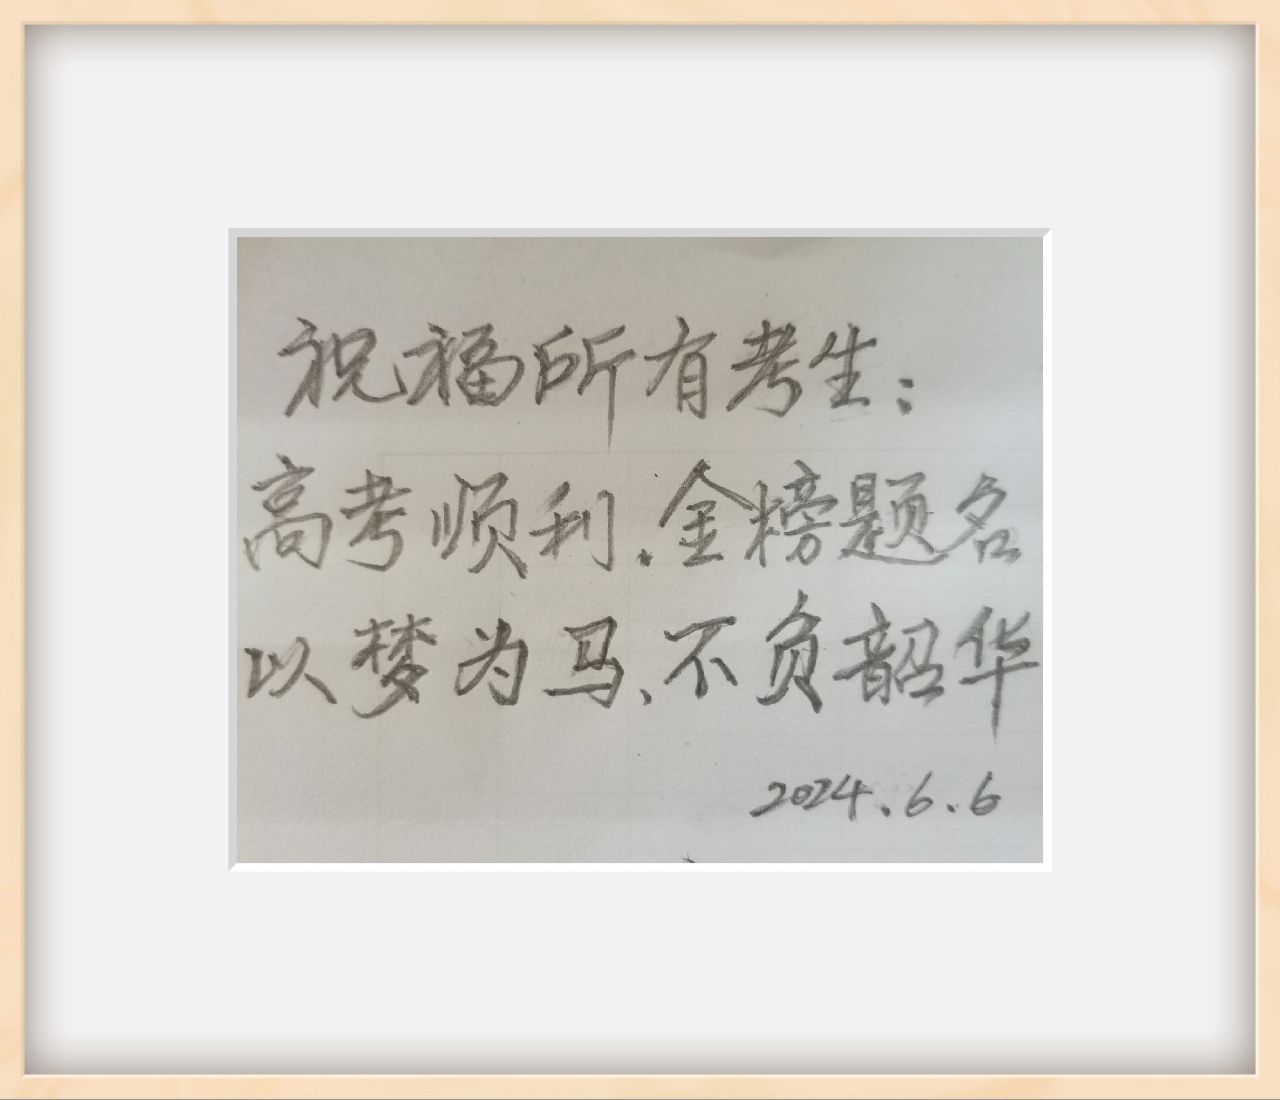 祝福所有考生：
高考顺利.金榜题名
以梦为马、不负韶华
2024.6.6